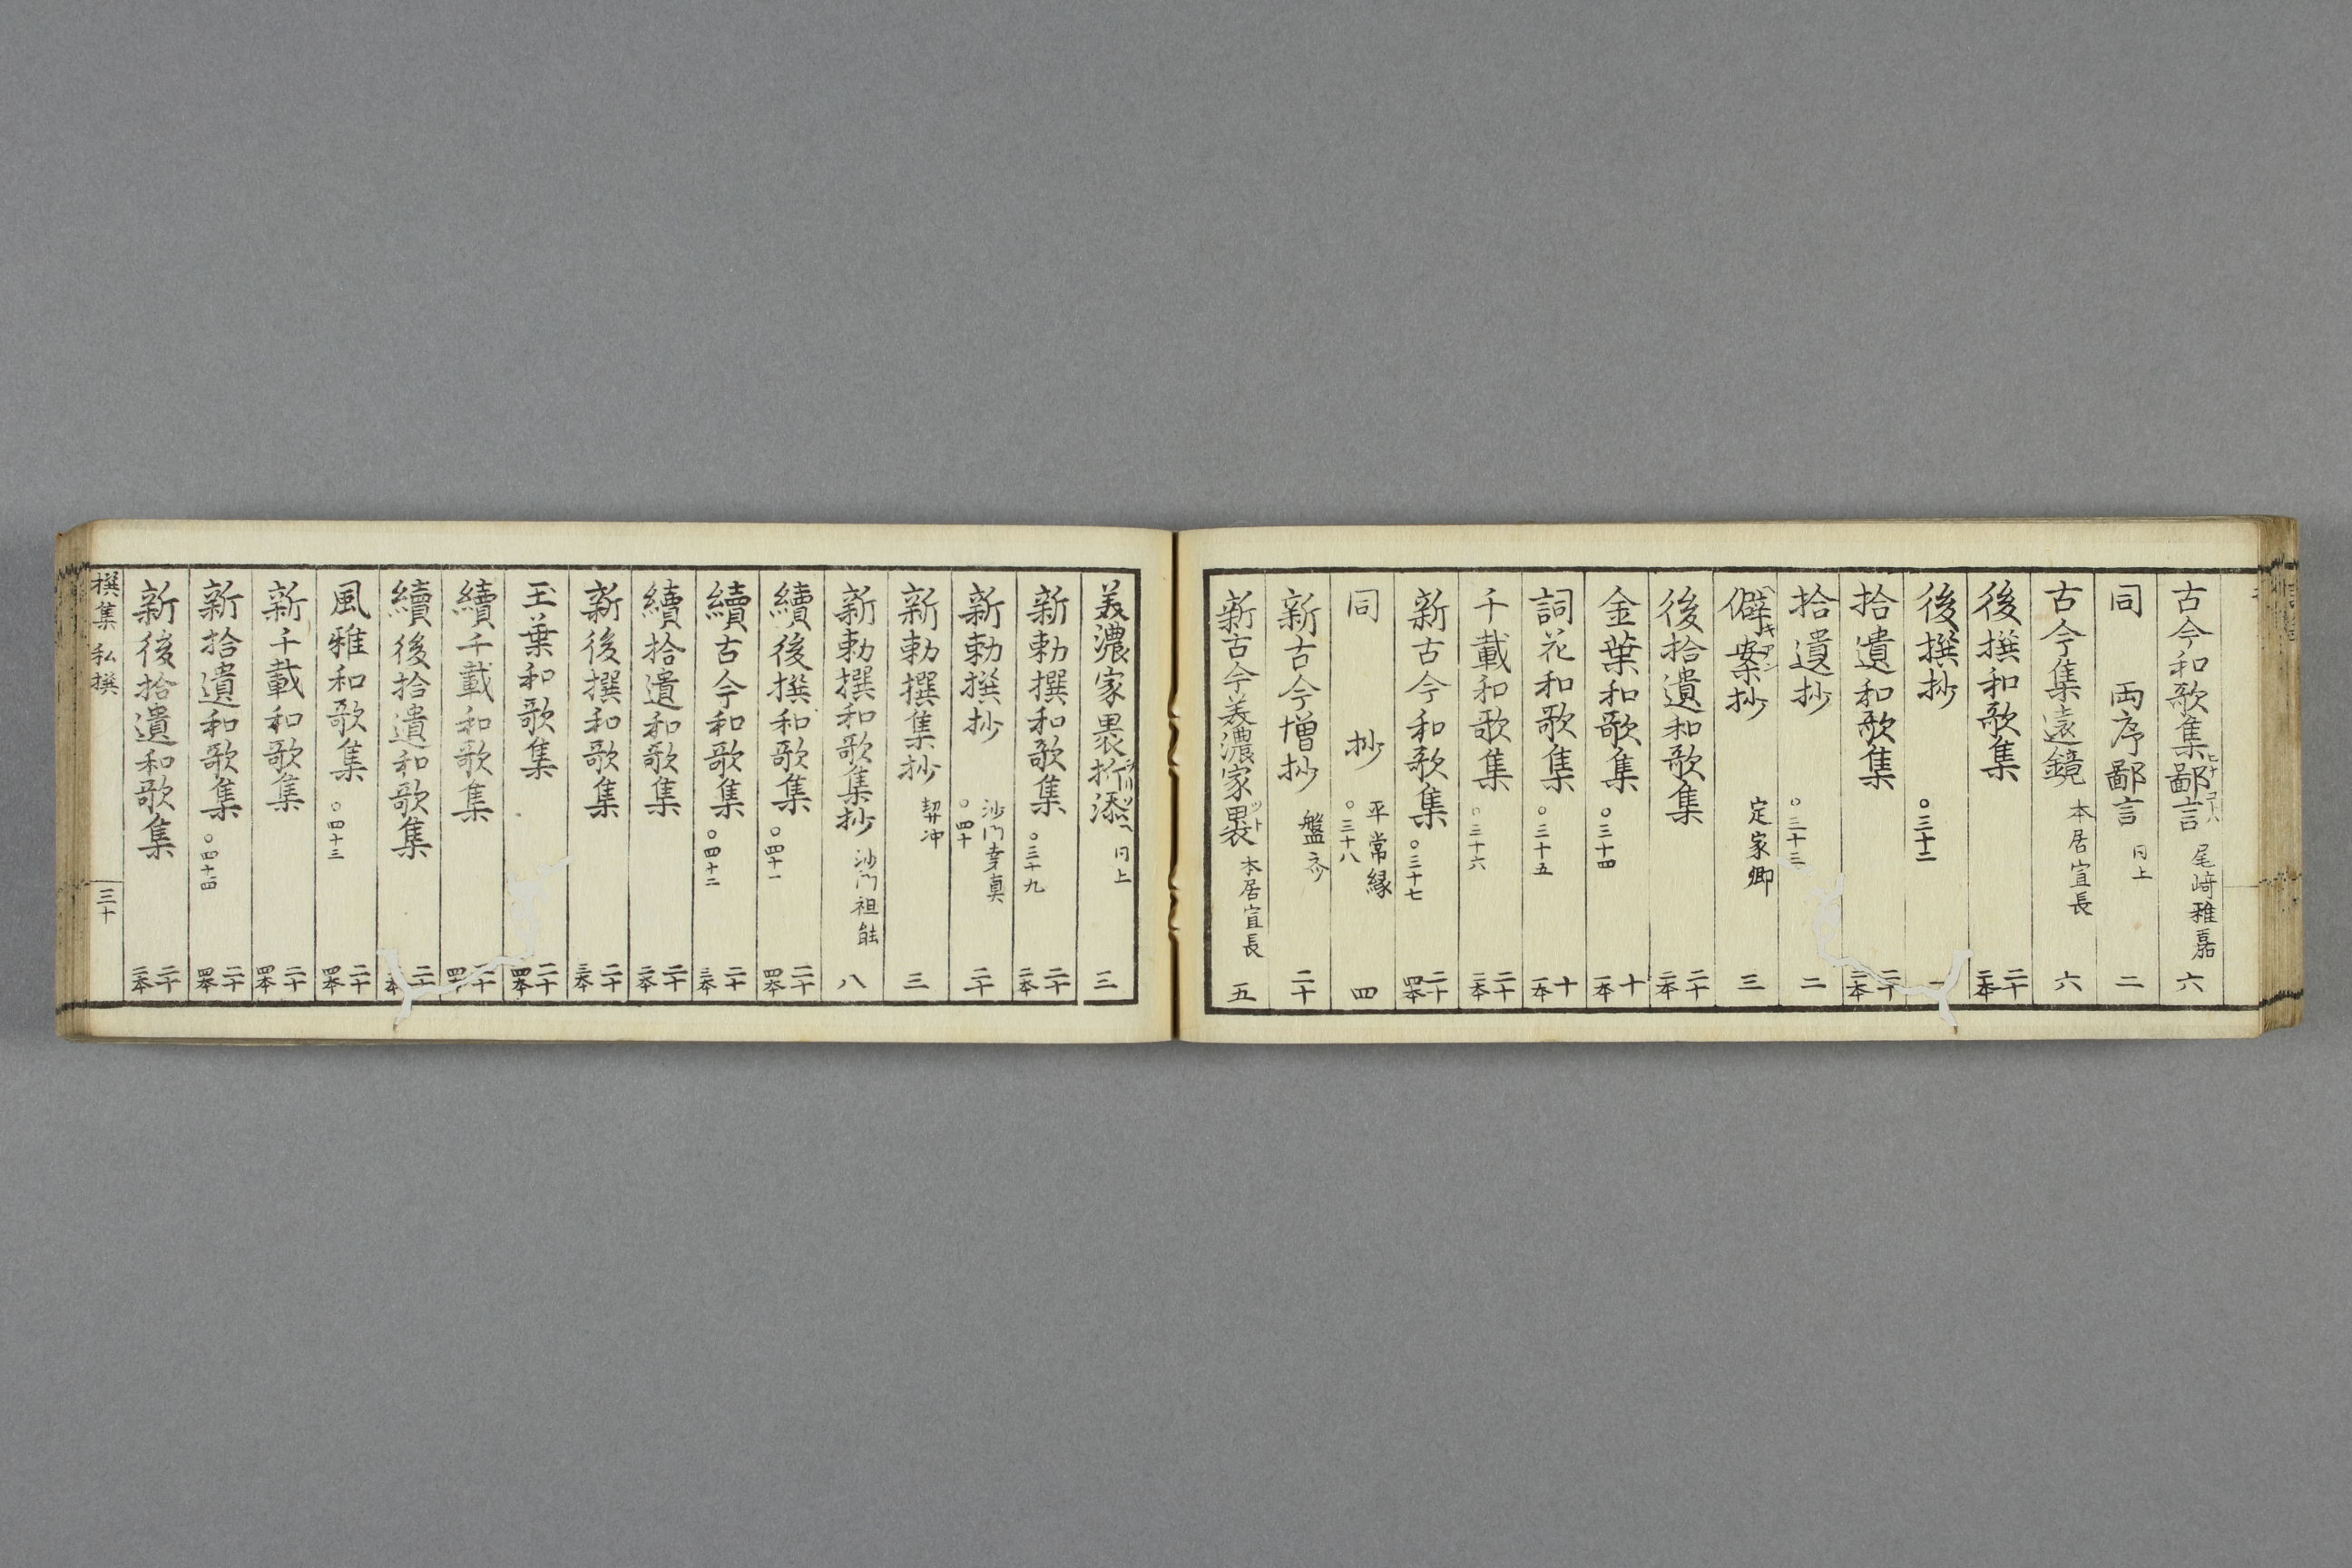 古今和歌集鄙言 尾﨑雅嘉 六
同 両序鄙言 同上 二
古今集遠鏡 本居宣長 六
後撰和歌集 二十 二本
後撰抄 ○三十二 一
拾遺和歌集 二十 二本
拾遺抄 ○三十三 二
僻案抄 定家卿 三
後拾遺和歌集 二十 二本
金葉和歌集 ○三十四 十 一本
詞花和歌集 ○三十五 十 一本
千載和歌集 ○三十六 二十 二本
新古今和歌集 ○三十七 二十 四本
同 抄 平常縁 ○三十八 四
新古今増抄 盤斎 二十
新古今美濃家裹 本居宣長 五
美濃家裹折添 同上 三
新勅撰和歌集 ○三十九 二十 二本
新勅撰抄 沙門幸真 ○四十 二十
新勅撰集抄 契冲 三
新勅撰和歌集抄 沙門祖能 八
續後撰和歌集 ○四十一 二十 四本
續古今和歌集 ○四十二 二十 三本
續拾遺和歌集 二十 二本
新後撰和歌集 二十 三本
玉葉和歌集 二十 四本
續千載和歌集 二十 四本
續後拾遺和歌集 二十 二本
風雅和歌集 ○四十三 二十 四本
新千載和歌集 二十 四本
新拾遺和歌集 ○四十四 二十 四本
新後拾遺和歌集 二十 二本
撰集 私撰 三十